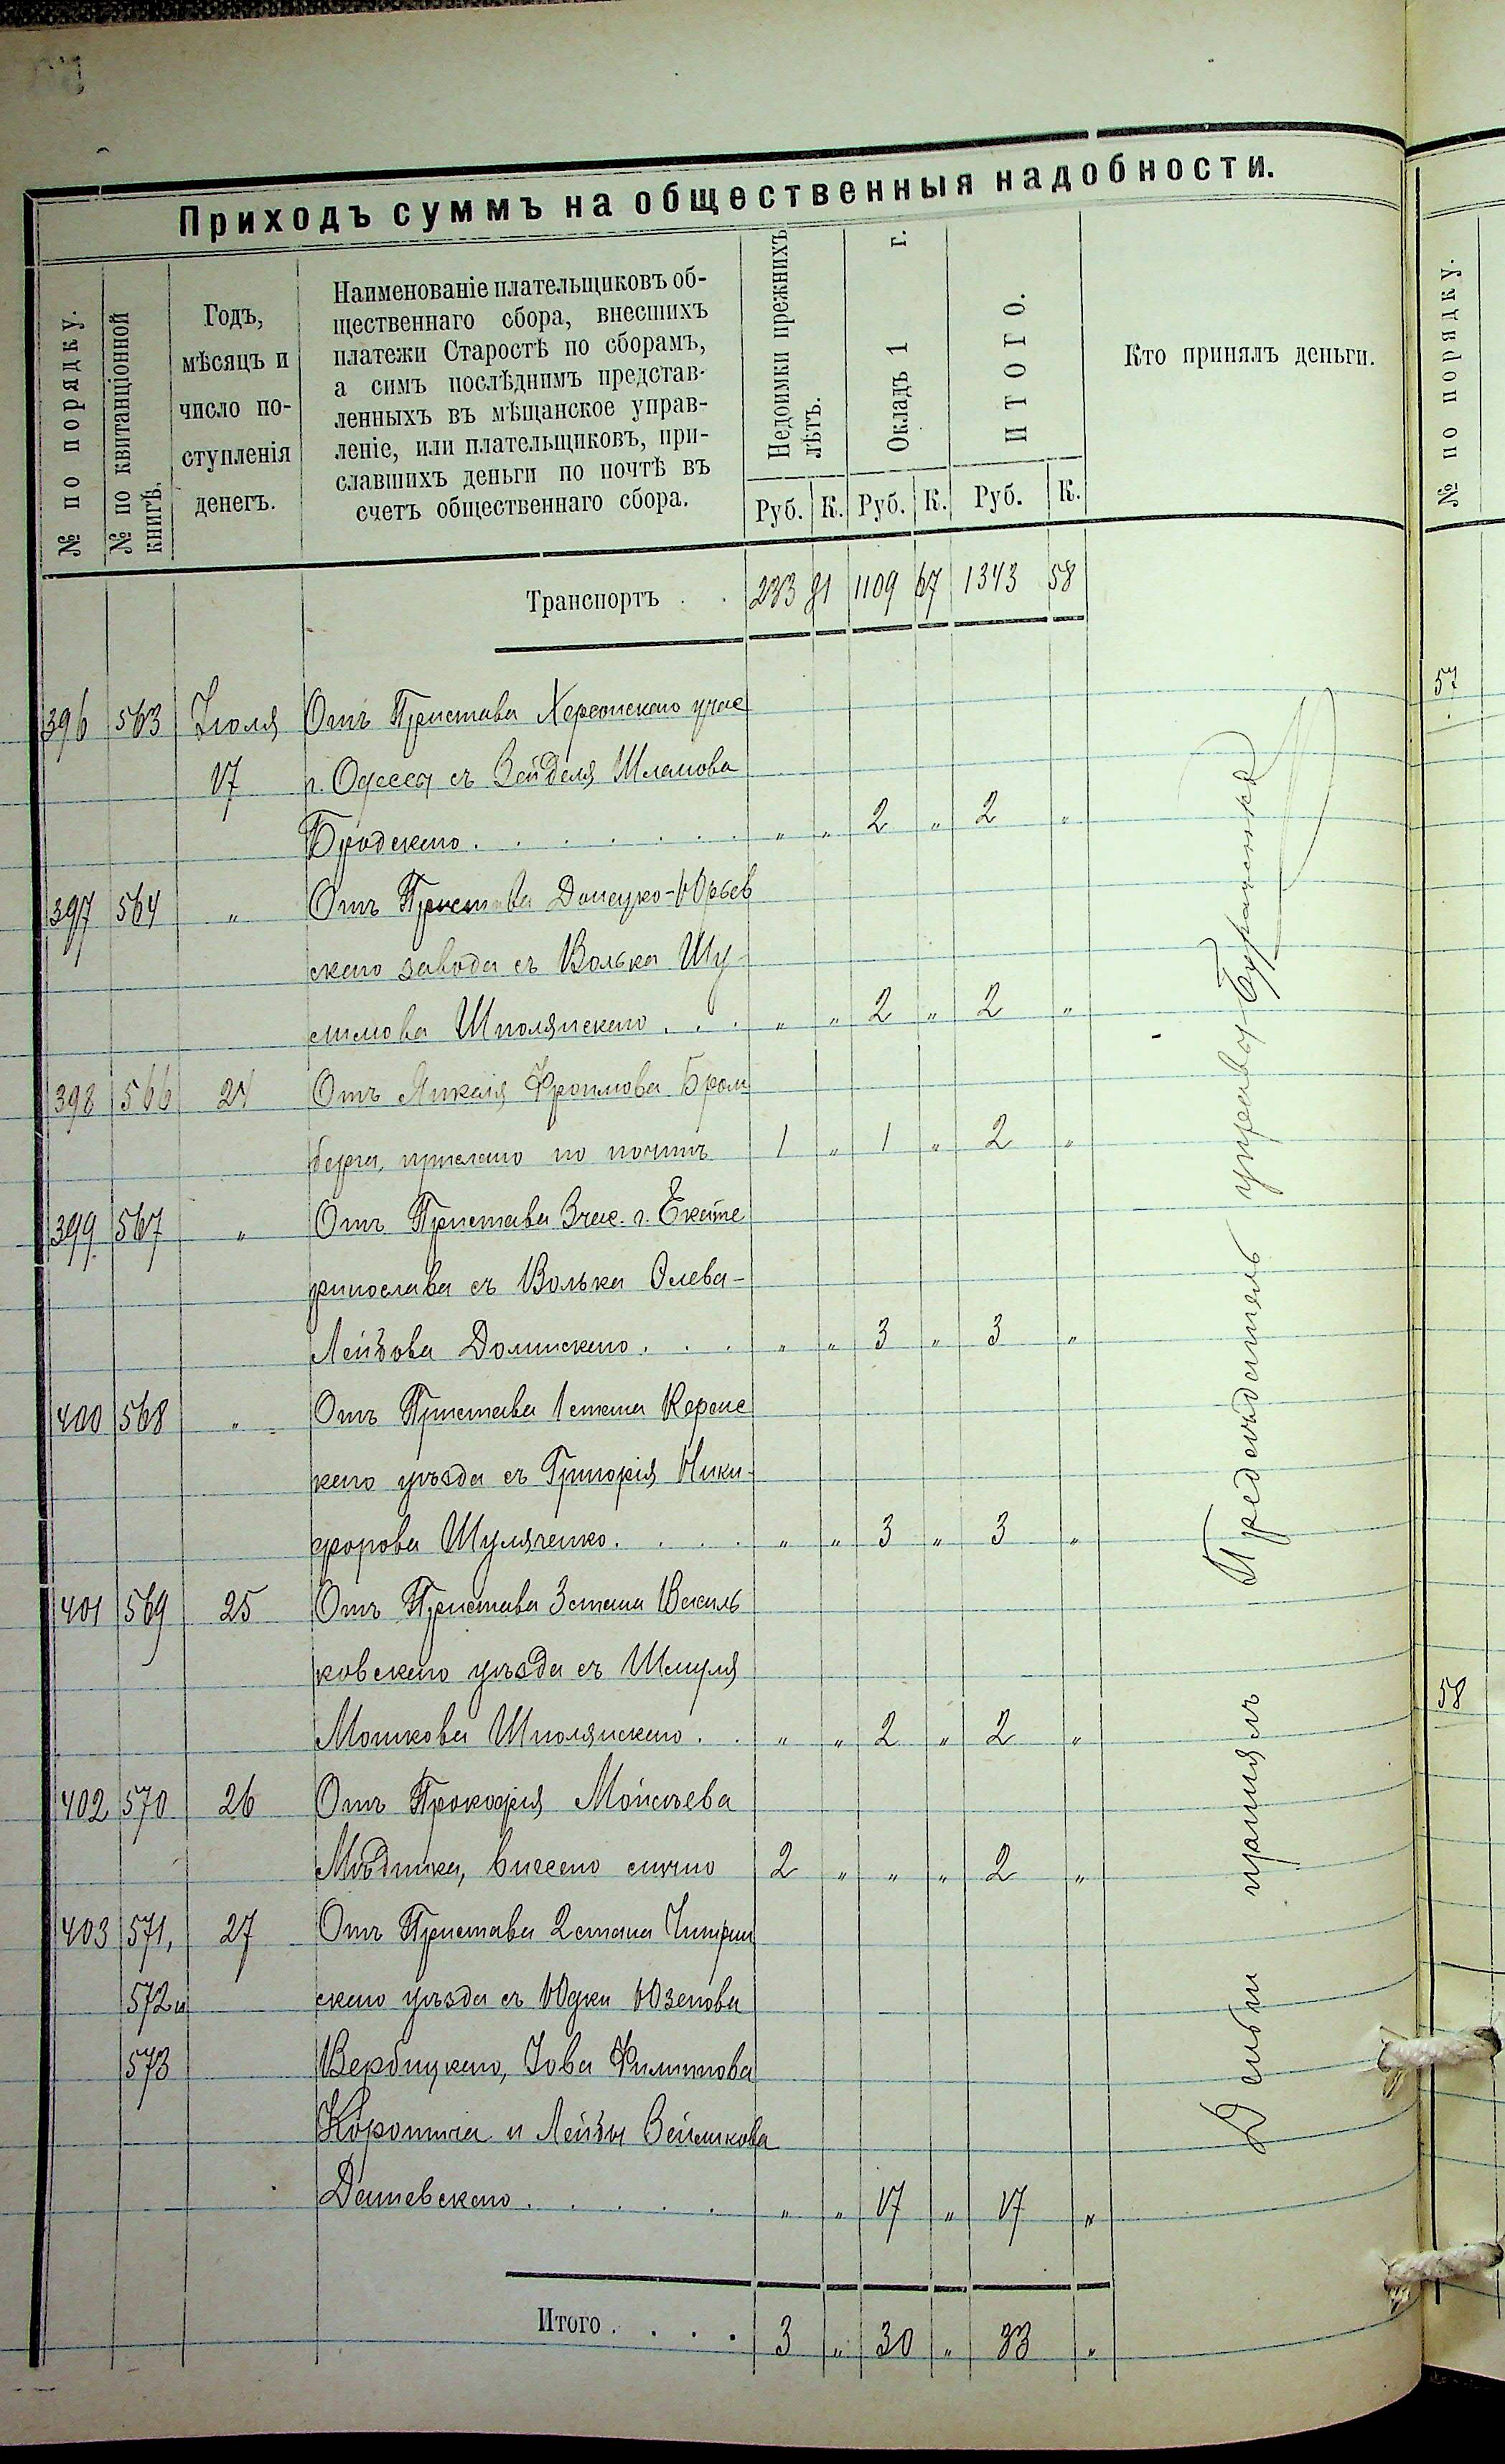 Приходъ суммъ на общественныя надобности.
№ по порядку.
№ по квитанціонной
книгѣ.
Годъ,
мѣсяцъ и
число по-
ступленія
денегъ.
Наименованіе плательщиковъ об-
щественнаго сбора, внесшихъ
платежи Старостѣ по сборамъ,
а симъ послѣднимъ представ-
ленныхъ въ мѣщанское управ-
леніе, или плательщиковъ, при-
славшихъ деньги по почтѣ въ
счетъ общественнаго сбора.
Недоимки прежнихъ
лѣтъ.
Окладъ 1 г.
ИТОГО.
Кто принялъ деньги.
Руб. К. Руб. К. Руб. К.
Транспортъ . . 233 91 1109 67 1343 58
396 563 Іюля Отъ Пристава Херсонскаго учас
17 г. Одессы съ Зейделя Шламова
Бродскаго . . . . . . " " 2 " 2 "
397 564 " Отъ Пристава Донецко-Юрьев
скаго завода съ Волька Шу-
лимова Шполянскаго . . . " " 2 " 2 "
398 566 24 Отъ Янкеля Фроимова Бром
берга, прислано по почтѣ 1 " 1 " 2 "
399 567 " Отъ Пристава 3 час. г. Екате
ринослава съ Волька Олева-
Лейзова Долинскаго . . . " " 3 " 3 "
400 568 " Отъ Пристава 1 стана
каго уѣзда съ Григорія Ники-
форова Шуляченко . . . . " " 3 " 3 "
401 569 25 Отъ Пристава 3 стана Василь
ковскаго уѣзда съ Шмуля
Мошкова Шполянскаго . . " " 2 " 2 "
402 570 26 Отъ Прокофія Мойсѣева
Мѣдника, внесено лично 2 " " " 2 "
403 571, 27 Отъ Пристава 2 стана Чигрин
572 и скаго уѣзда съ Юдки Юзепова
573 Вербицкаго, Іова Филиппова
Коротича и Лейзы Зейликова
Дашевскаго . . . . . " " 17 " 17 "
Итого . . . . 3 " 30 " 33 "
Деньги принялъ Предсѣдатель управы
№ по порядку.
57
58